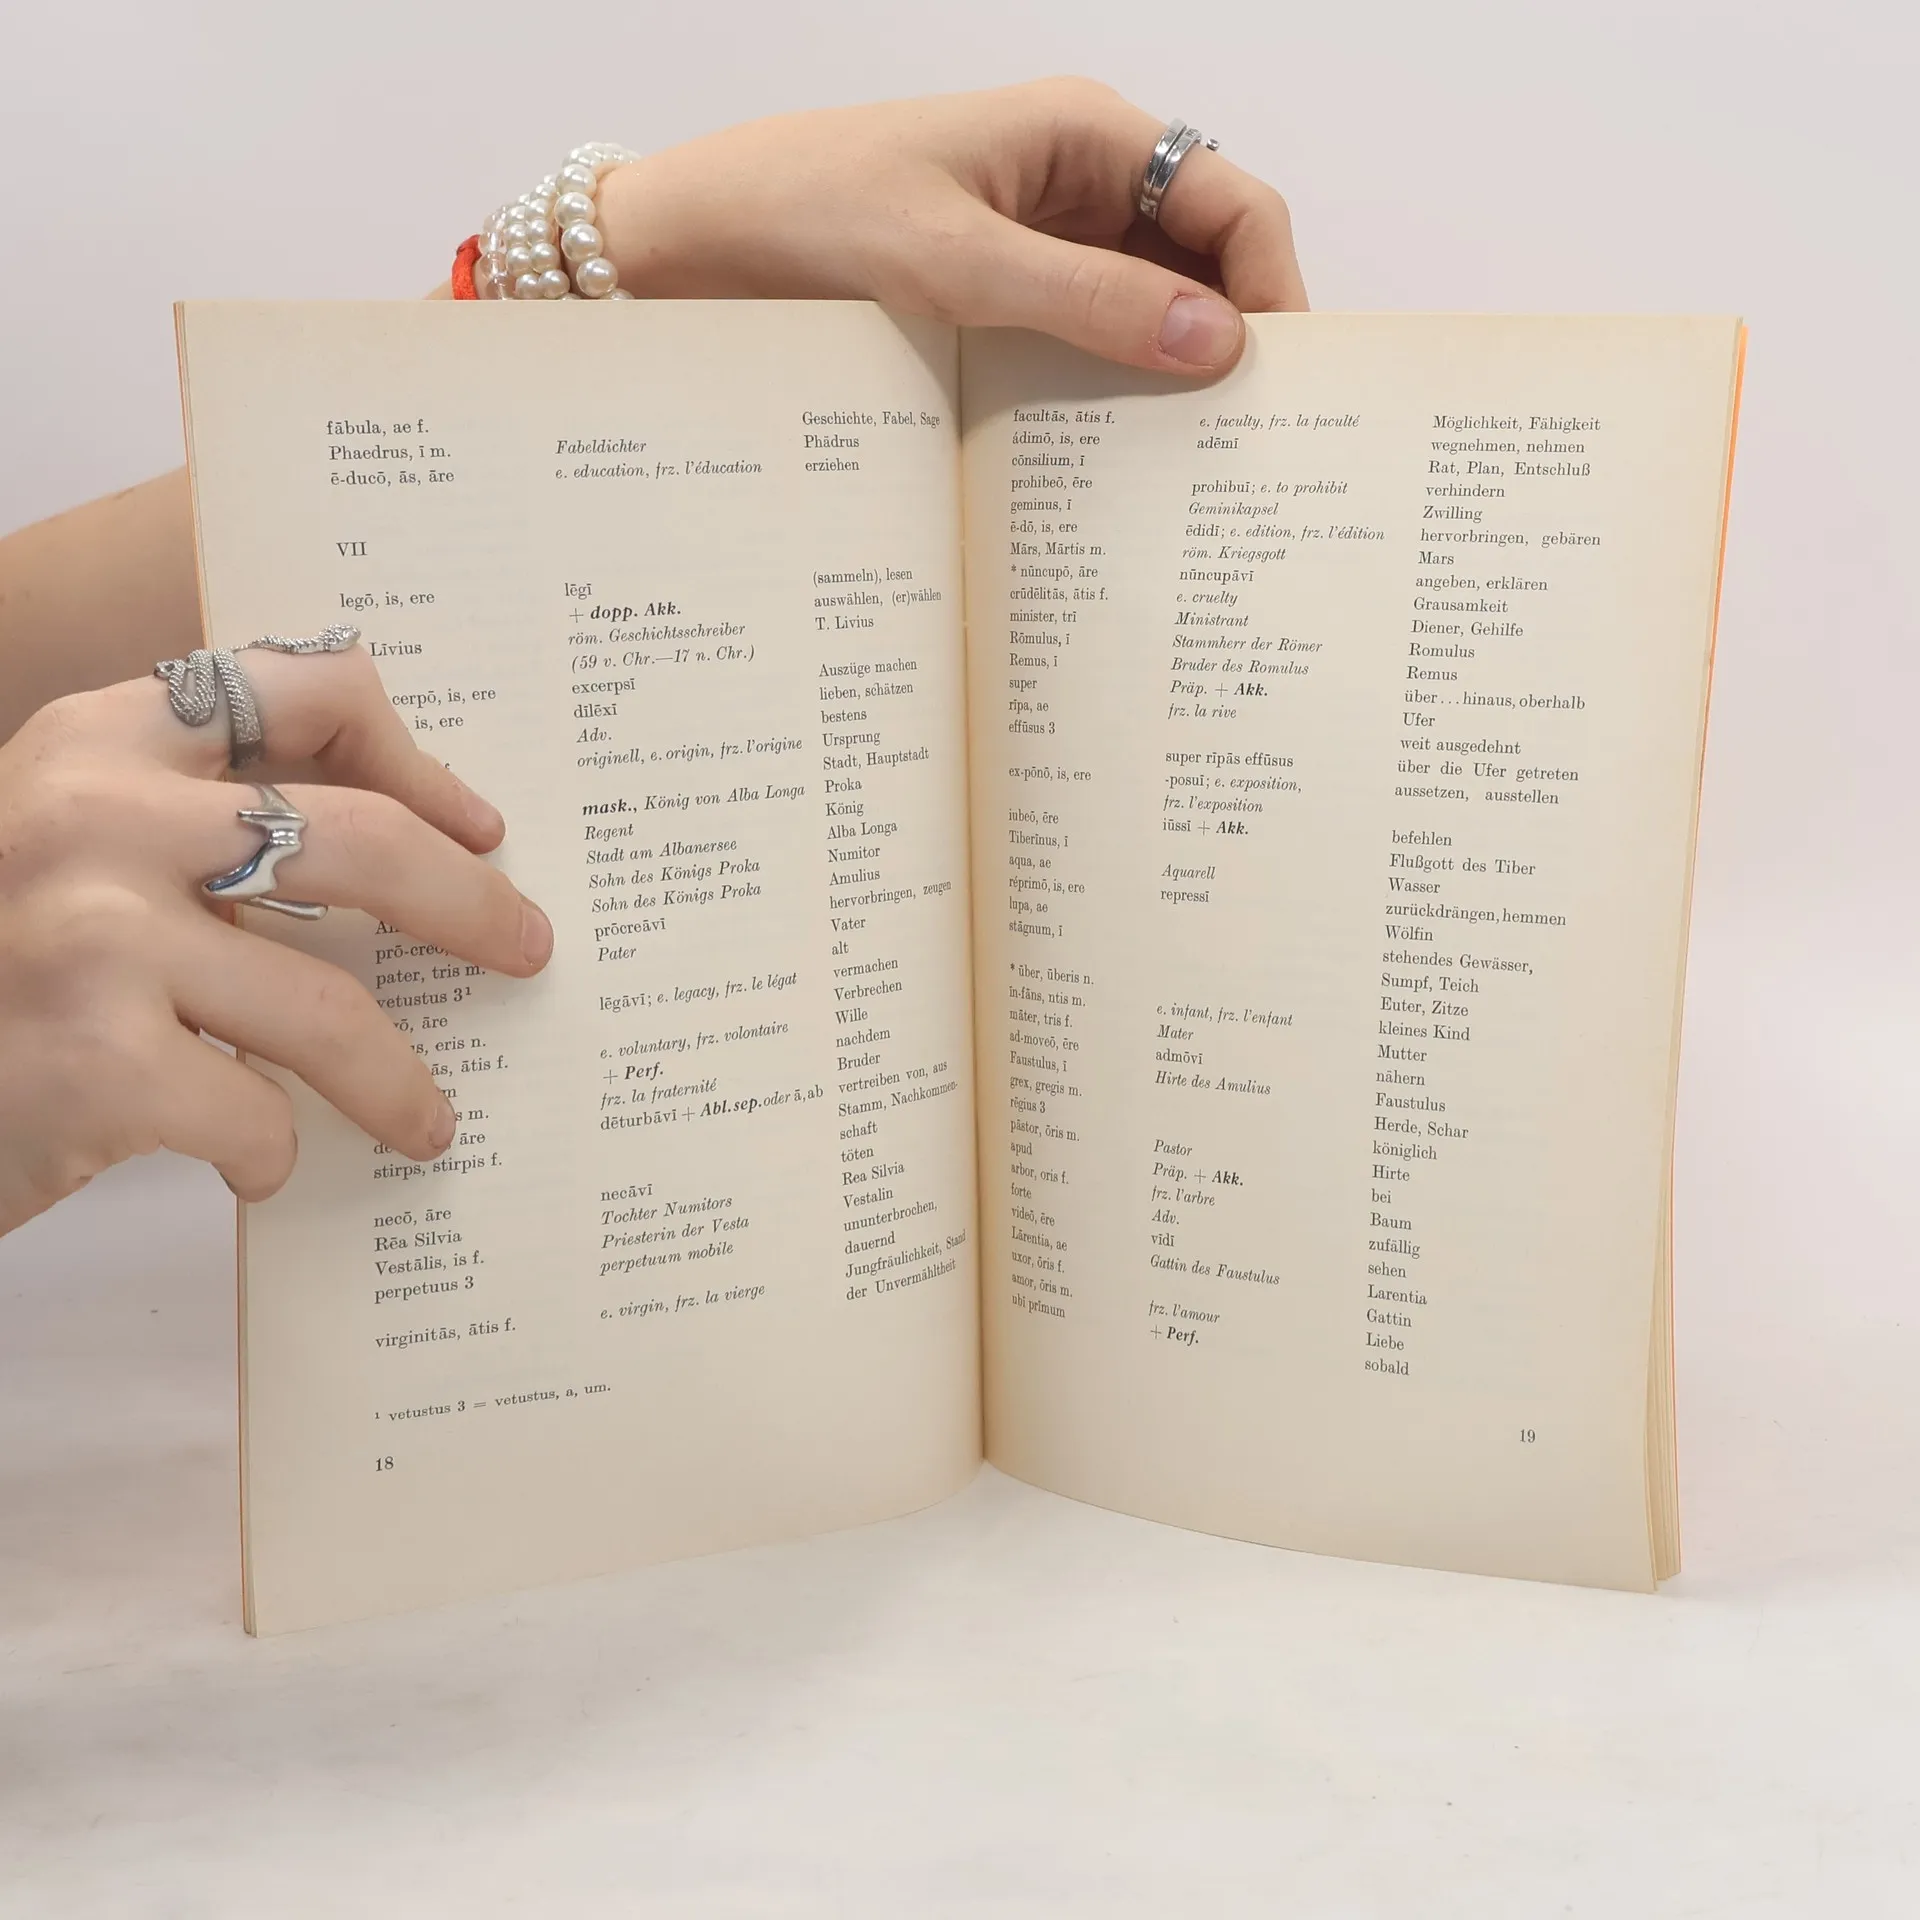 fābula, ae f. Geschichte, Fabel, Sage
Phaedrus, ī m. Fabeldichter Phädrus
ē-ducō, ās, āre e. education, frz. l'éducation erziehen
VII
legō, is, ere lēgī (sammeln), lesen
+ dopp. Akk. auswählen, (er)wählen
Līvius röm. Geschichtsschreiber T. Livius
(59 v. Chr.—17 n. Chr.)
cerpō, is, ere excerpsī Auszüge machen
is, ere dīlēxī lieben, schätzen
Adv. bestens
originell, e. origin, frz. l'origine Ursprung
Stadt, Hauptstadt
mask., König von Alba Longa Proka
Regent König
Stadt am Albanersee Alba Longa
Sohn des Königs Proka Numitor
Sohn des Königs Proka Amulius
prō-creō, prōcreāvī hervorbringen, zeugen
pater, tris m. Pater Vater
vetustus 3¹ alt
āre lēgāvī; e. legacy, frz. le légat vermachen
eris n. Verbrechen
ās, ātis f. e. voluntary, frz. volontaire Wille
+ Perf. nachdem
m. frz. la fraternité Bruder
āre dēturbāvī + Abl. sep. oder ā, ab vertreiben von, aus
stirps, stirpis f. Stamm, Nachkommen-
schaft
necō, āre necāvī töten
Rēa Silvia Tochter Numitors Rea Silvia
Vestālis, is f. Priesterin der Vesta Vestalin
perpetuus 3 perpetuum mobile ununterbrochen,
dauernd
virginitās, ātis f. e. virgin, frz. la vierge Jungfräulichkeit, Stand
der Unvermähltheit
¹ vetustus 3 = vetustus, a, um.
18
facultās, ātis f. e. faculty, frz. la faculté Möglichkeit, Fähigkeit
ádimō, is, ere adēmī wegnehmen, nehmen
cōnsilium, ī Rat, Plan, Entschluß
prohibeō, ēre prohibuī; e. to prohibit verhindern
geminus, ī Geminikapsel Zwilling
ē-dō, is, ere ēdidī; e. edition, frz. l'édition hervorbringen, gebären
Mārs, Mārtis m. röm. Kriegsgott Mars
* nūncupō, āre nūncupāvī angeben, erklären
crūdēlitās, ātis f. e. cruelty Grausamkeit
minister, trī Ministrant Diener, Gehilfe
Rōmulus, ī Stammherr der Römer Romulus
Remus, ī Bruder des Romulus Remus
super Präp. + Akk. über...hinaus, oberhalb
rīpa, ae frz. la rive Ufer
effūsus 3 weit ausgedehnt
super rīpās effūsus über die Ufer getreten
ex-pōnō, is, ere -posuī; e. exposition, aussetzen, ausstellen
frz. l'exposition
iubeō, ēre iūssī + Akk. befehlen
Tiberīnus, ī Flußgott des Tiber
aqua, ae Aquarell Wasser
réprimō, is, ere repressī zurückdrängen, hemmen
lupa, ae Wölfin
stāgnum, ī stehendes Gewässer,
Sumpf, Teich
* ūber, ūberis n. Euter, Zitze
īn-fāns, ntis m. e. infant, frz. l'enfant kleines Kind
māter, tris f. Mater Mutter
ad-moveō, ēre admōvī nähern
Faustulus, ī Hirte des Amulius Faustulus
grex, gregis m. Herde, Schar
rēgius 3 königlich
pāstor, ōris m. Pastor Hirte
apud Präp. + Akk. bei
arbor, oris f. frz. l'arbre Baum
forte Adv. zufällig
videō, ēre vīdī sehen
Lārentia, ae Gattin des Faustulus Larentia
uxor, ōris f. Gattin
amor, ōris m. frz. l'amour Liebe
ubi prīmum + Perf. sobald
19